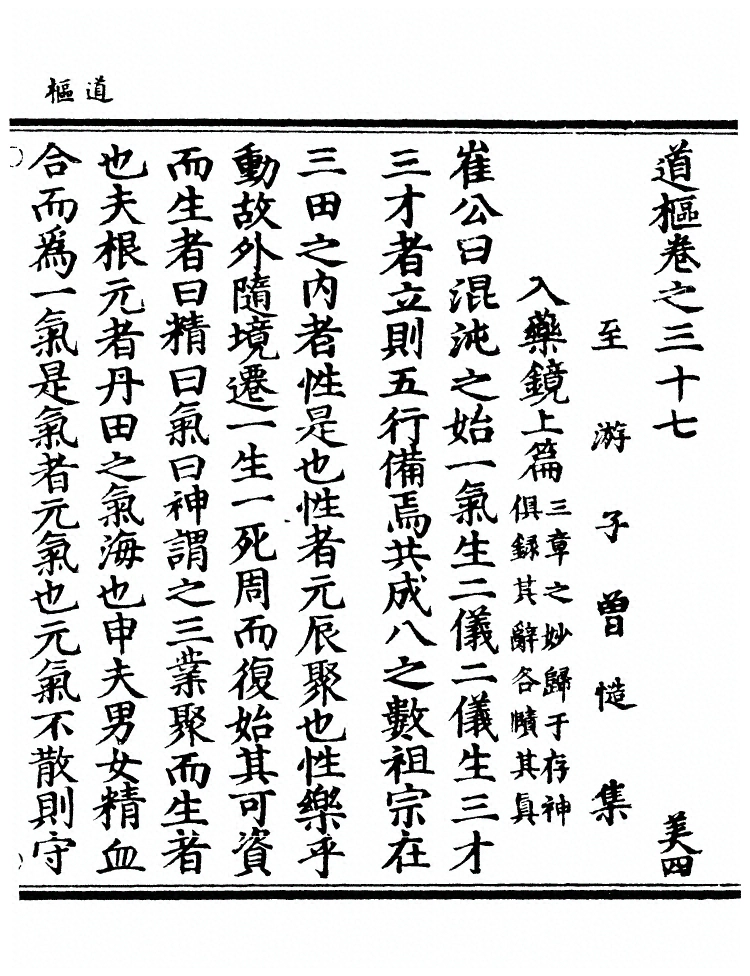 道樞
道樞卷之三十七　美四
至游子曾慥集
入藥鏡上篇
三章之妙歸于存神
俱録其辭各賾其眞
崔公曰混沌之始一氣生二儀二儀生三才
三才者立則五行備焉共成八之數祖宗在
三田之内者性是也性者元辰聚也性樂乎
動故外隨境遷一生一死周而復始其可資
而生者曰精曰氣曰神謂之三業聚而生者
也夫根元者丹田之氣海也申夫男女精血
合而爲一氣是氣者元氣也元氣不散則守